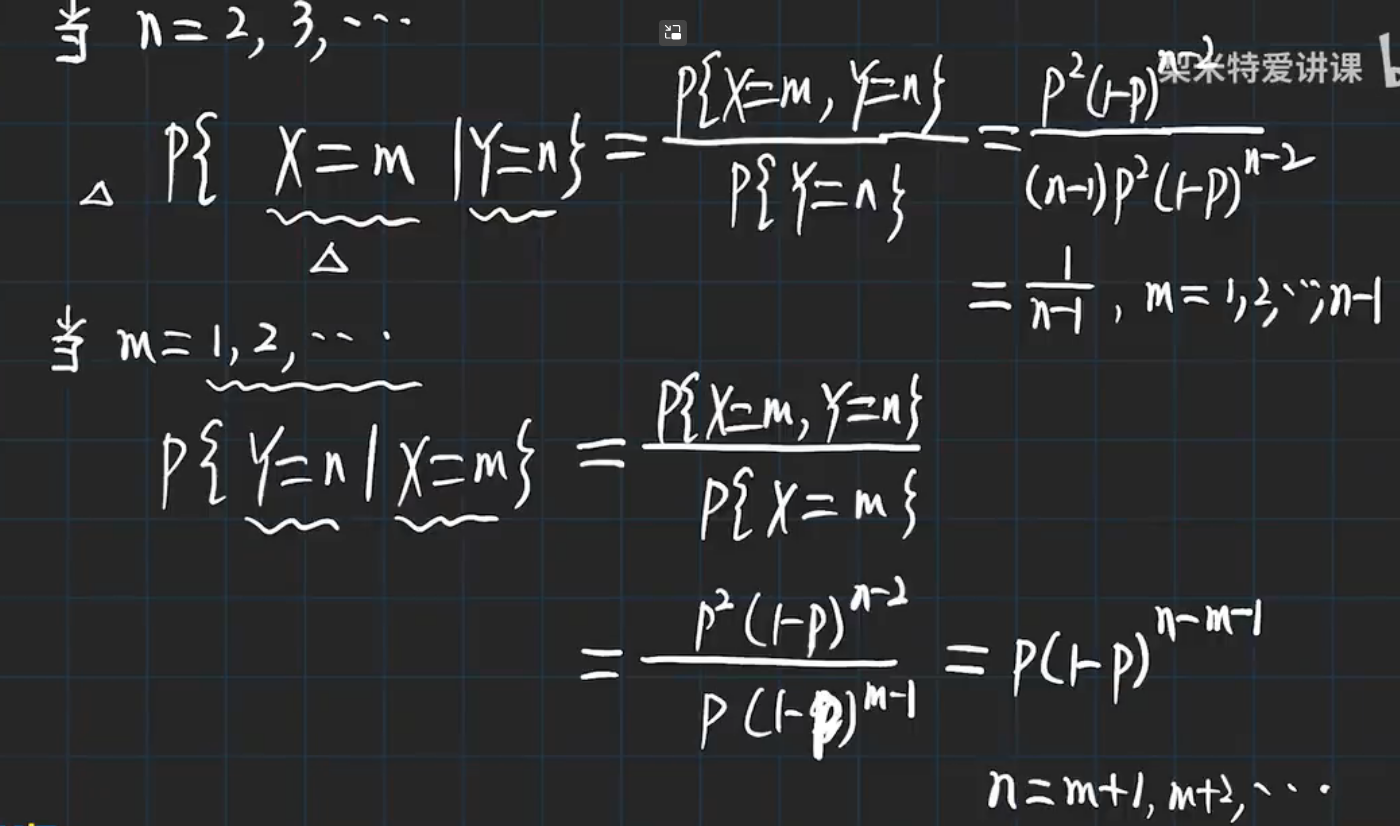 当 n=2, 3, ⋯
架米特爱讲课
△ P{ X=m | Y=n} = P{X=m, Y=n} / P{Y=n} = p²(1-p)^(n-2) / (n-1)p²(1-p)^(n-2)
△
= 1/(n-1), m=1,2,⋯,n-1
当 m=1,2,⋯
P{ Y=n | X=m} = P{X=m, Y=n} / P{X=m}
= p²(1-p)^(n-2) / p(1-p)^(m-1) = p(1-p)^(n-m-1)
n=m+1, m+2, ⋯